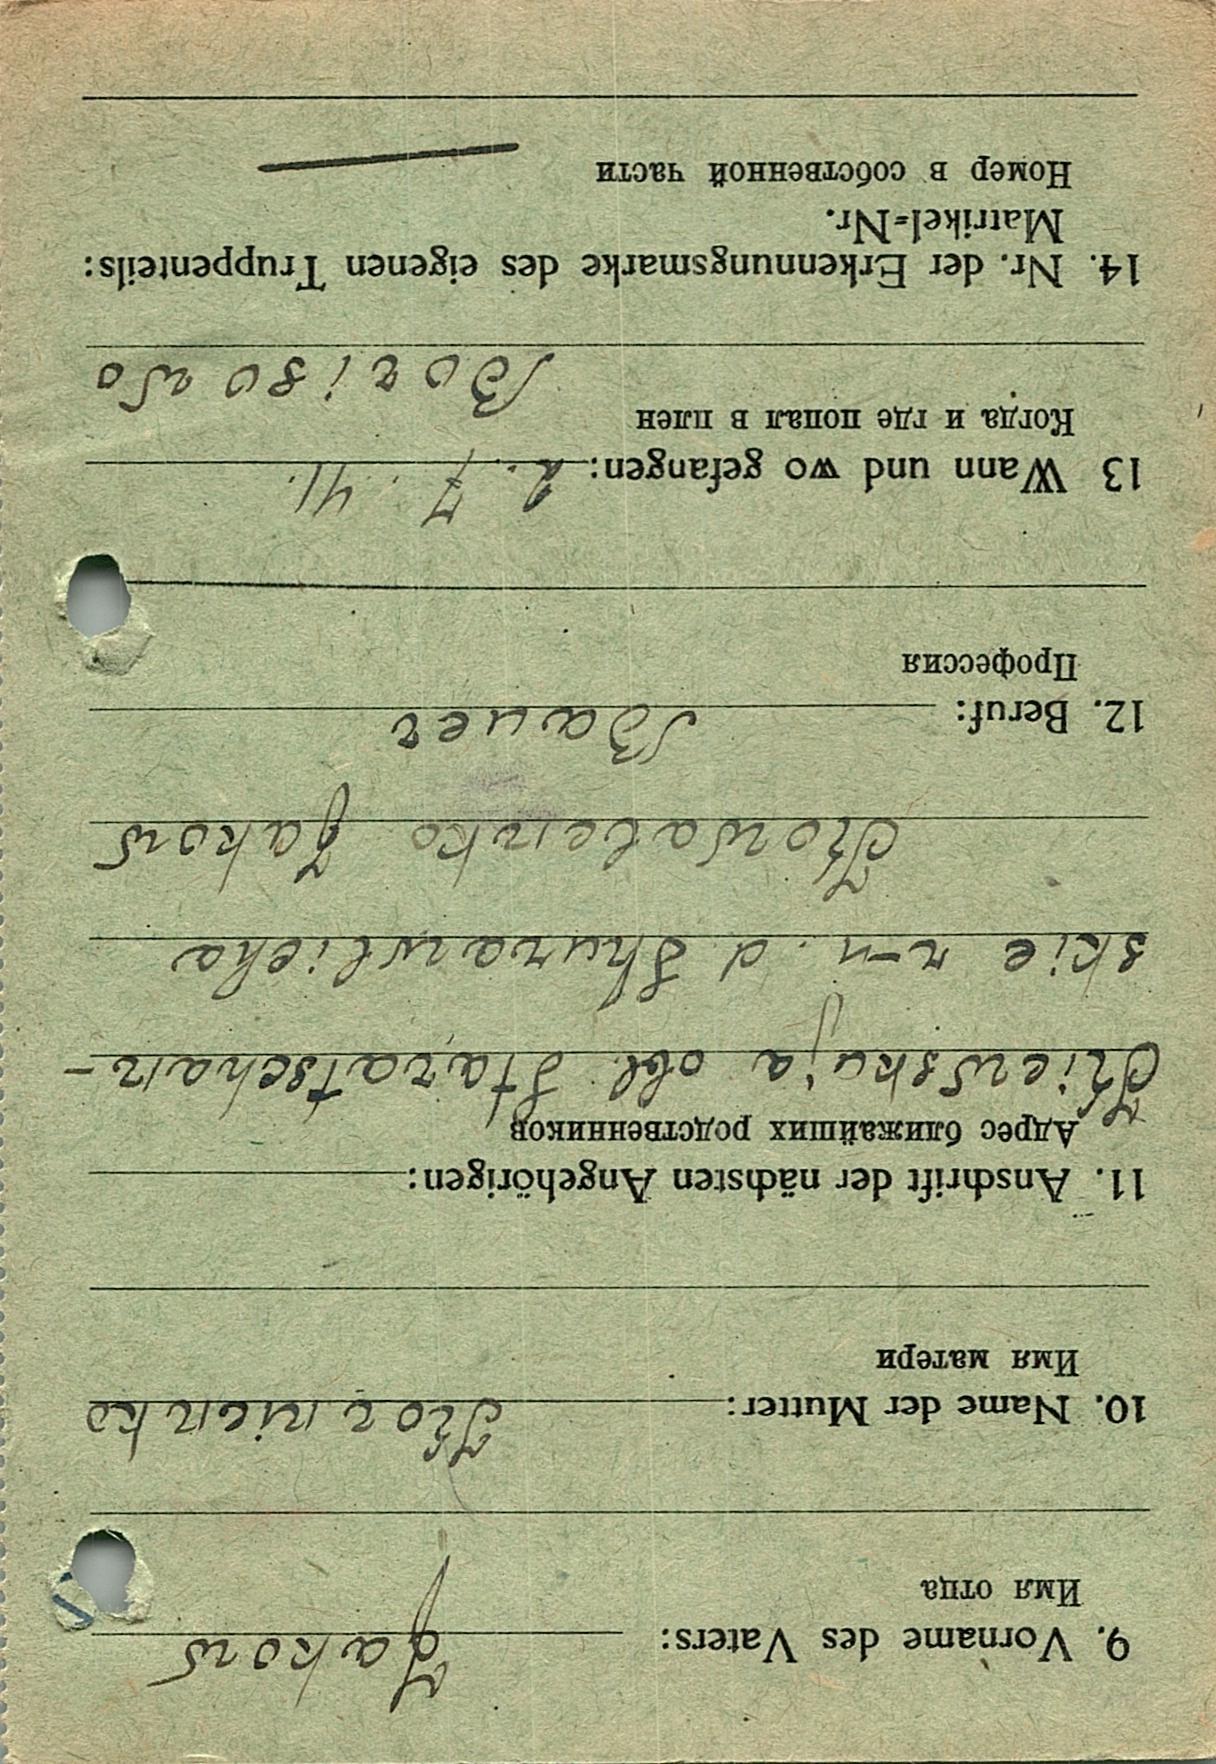 9. Vorname des Vaters: Jakow
Имя отца
10. Name der Mutter: Kornienko
Имя матери
11. Anschrift der nächsten Angehörigen:
Адрес ближайших родственников
Kiewskaja obl. Staratschan-
skie r-n. d.
Kowalenko Jakow
12. Beruf: Bauer
Профессия
13 Wann und wo gefangen: 2. 7. 41.
Когда и где попал в плен
Borisowo
14. Nr. der Erkennungsmarke des eigenen Truppenteils:
Matrikel-Nr.
Номер в собственной части